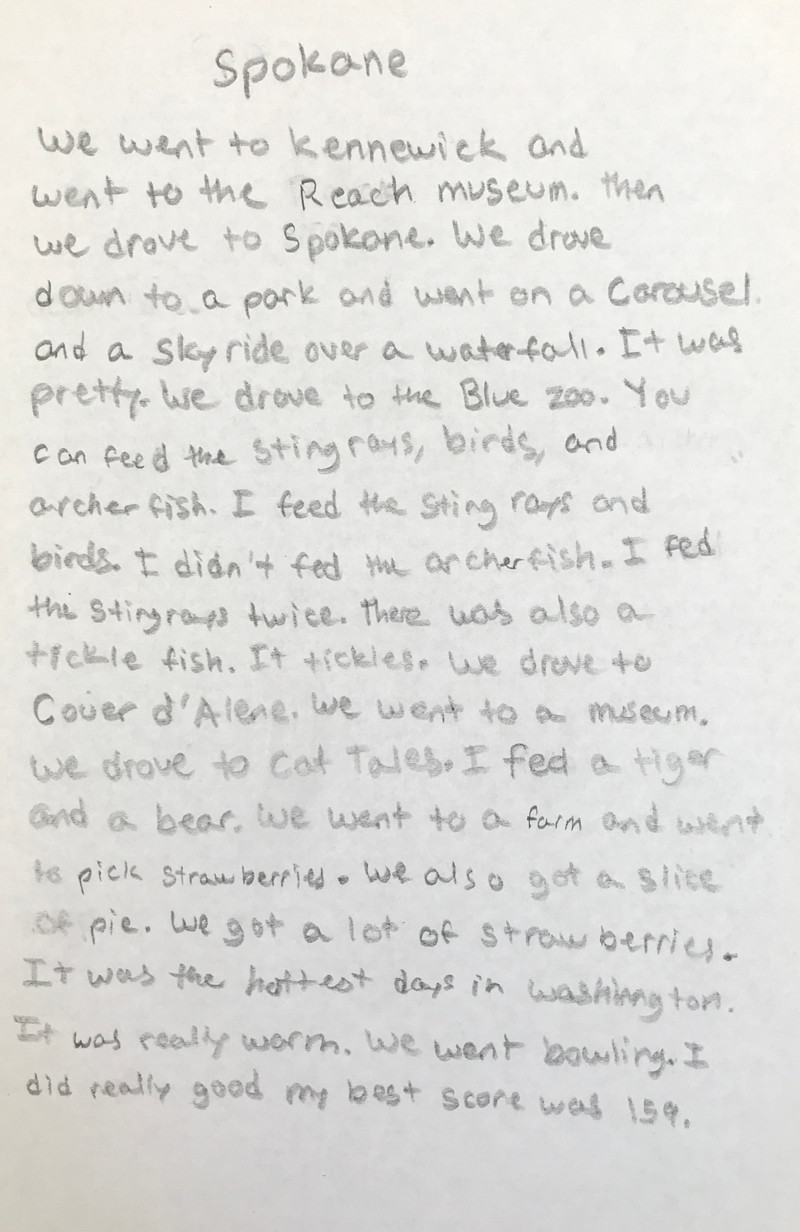 Spokane
We went to kennewick and
went to the Reach museum. then
we drove to Spokane. We drove
down to a park and went on a Carousel.
and a sky ride over a waterfall. It was
pretty. We drove to the Blue zoo. You
can feed the stingrays, birds, and
archer fish. I feed the sting rays and
birds. I didn't fed the archerfish. I fed
the stingrays twice. There was also a
tickle fish. It tickles. We drove to
Couer d'Alene. We went to a museum.
We drove to Cat Tales. I fed a tiger
and a bear. We went to a farm and went
to pick strawberries. We also got a slice
of pie. We got a lot of strawberries.
It was the hottest days in washington.
It was really warm. We went bowling. I
did really good my best score was 159.